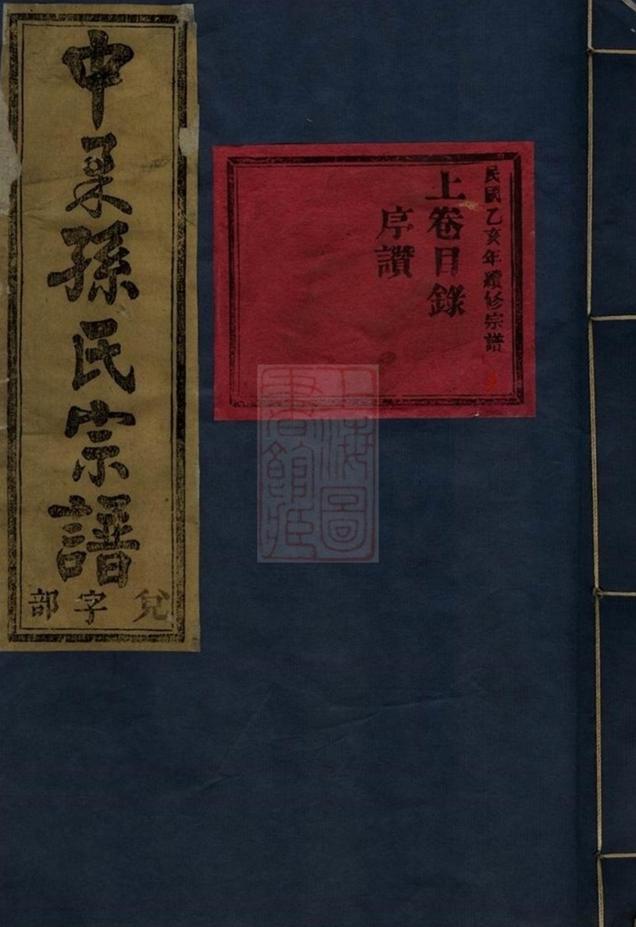 中采孫氏宗譜
兌字部
民國乙亥年續修宗譜
上卷目錄
序讚
上海圖
書館臧